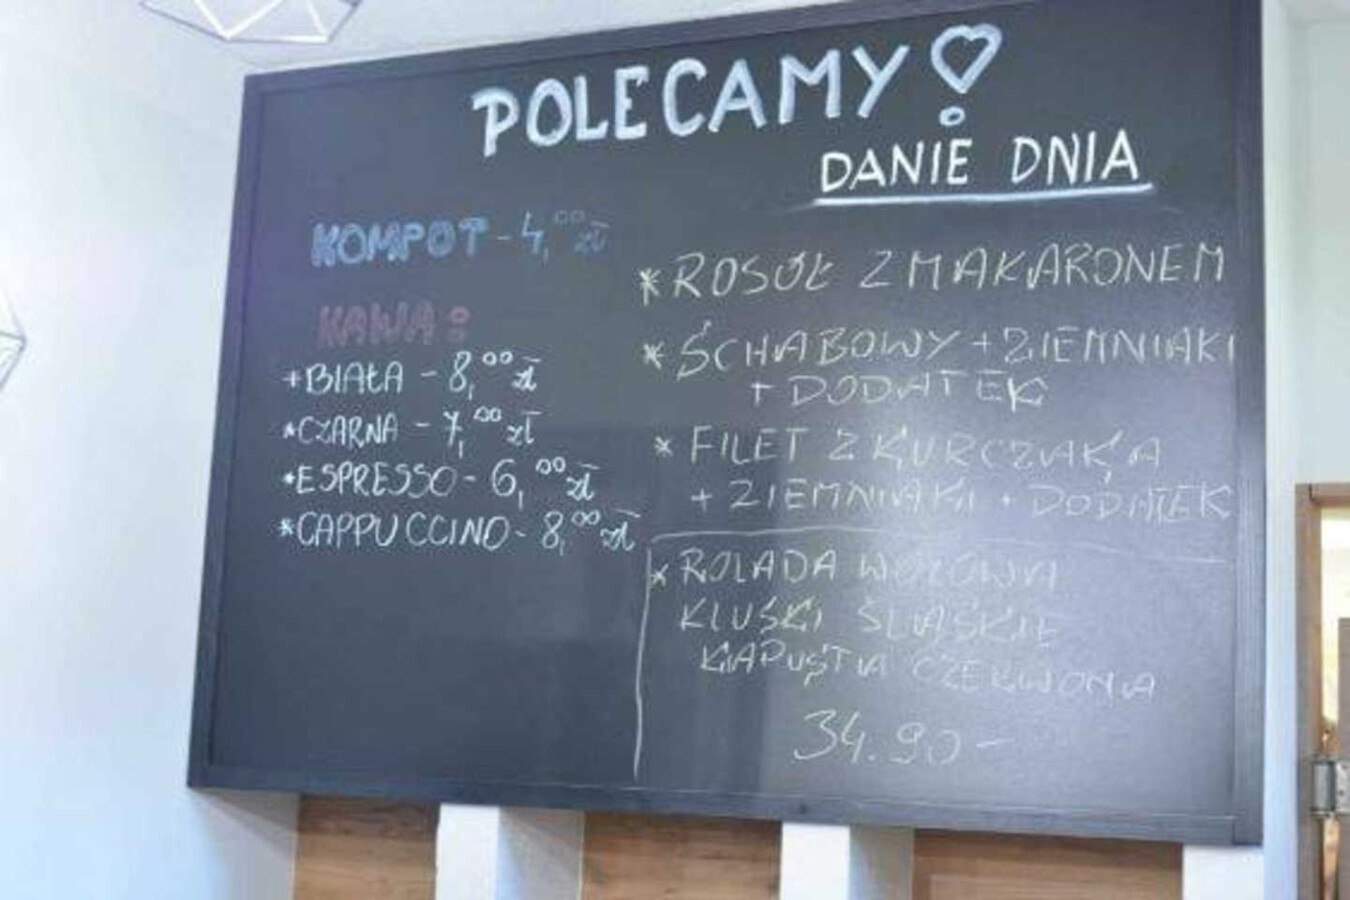 POLECAMY!
DANIE DNIA
KOMPOT - 4,00 zł
KAWA:
+BIAŁA - 8,00 zł
*CZARNA - 7,00 zł
*ESPRESSO - 6,00 zł
*CAPPUCCINO - 8,00 zł
* ROSÓŁ Z MAKARONEM
* SCHABOWY + ZIEMNIAKI
+ DODATEK
* FILET Z KURCZAKA
+ ZIEMNIAKI + DODATEK
* ROLADA WOŁOWA
KLUSKI ŚLĄSKIE
KAPUSTA CZERWONA
34.90-